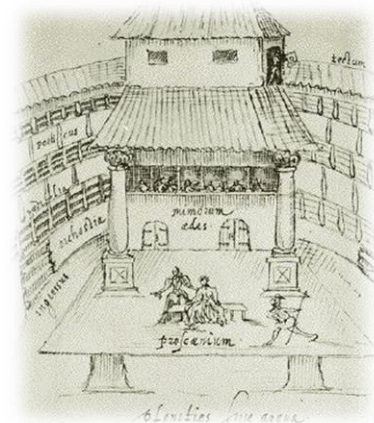 tectum
porticus
sedilia
orchestra
ingressus
mimorum
ædes
proscænium
planities sive arena